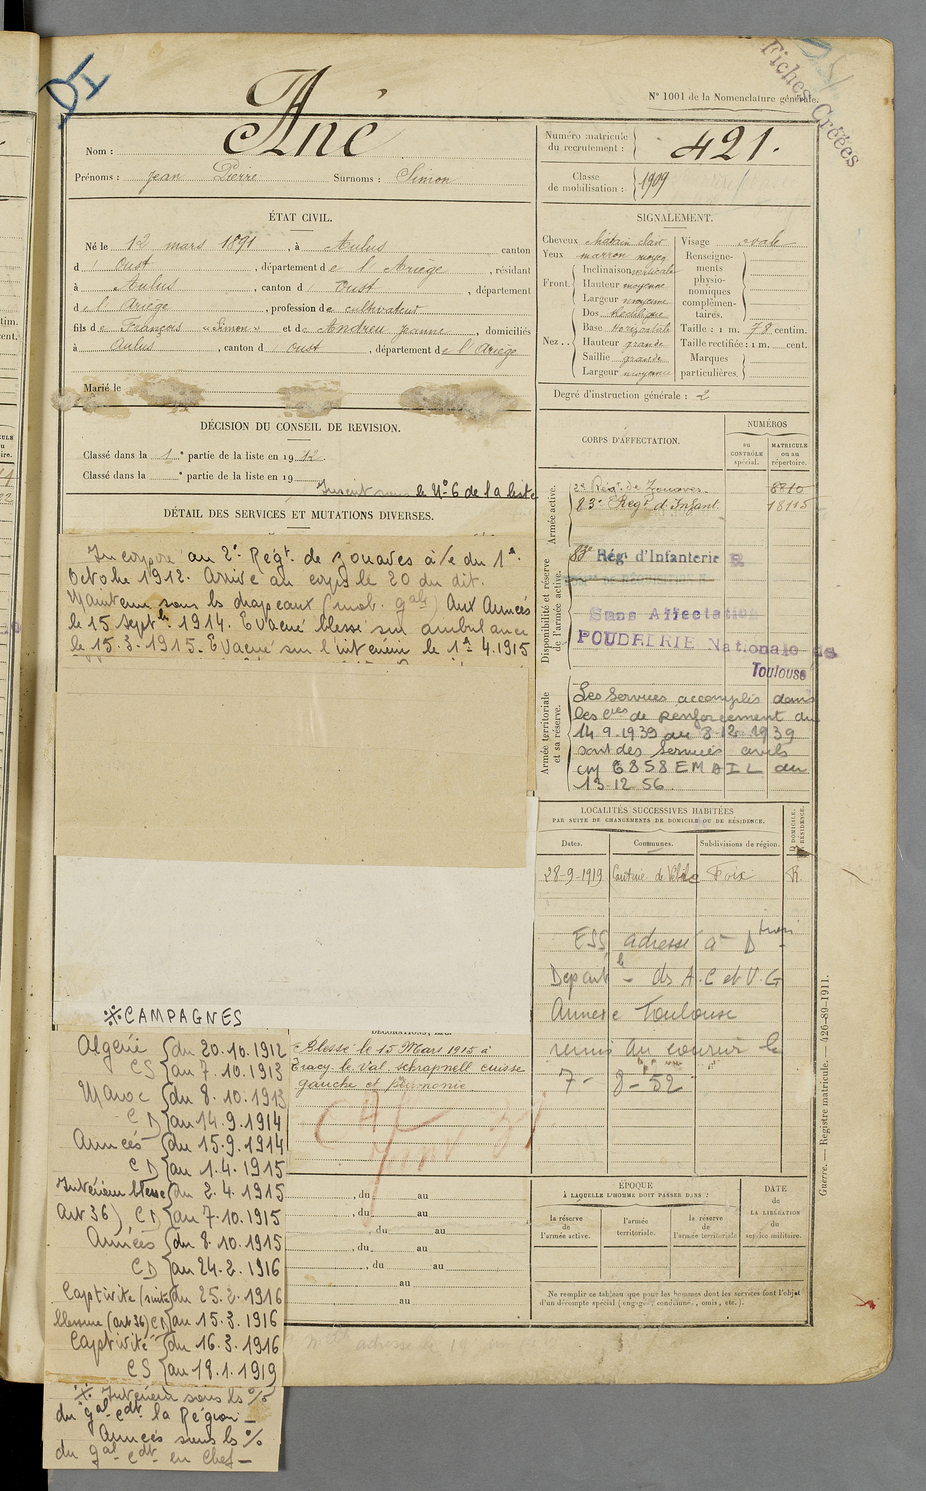 DI
Fiches Créées
N° 1001 de la Nomenclature générale.
Nom : Ané
Prénoms : Jean Pierre Surnoms : Simon
Numéro matricule du recrutement : 421.
Classe de mobilisation : 1909
ÉTAT CIVIL.
Né le 12 mars 1891, à Aulus canton
d' Oust, département de l'Ariège, résidant
à Aulus, canton d' Oust, département
de l'Ariège, profession de cultivateur
fils de François « Simon » et de Andreu Jeanne, domiciliés
à Aulus, canton d' Oust, département de l'Ariège
Marié le
SIGNALEMENT.
Cheveux châtain clair
Yeux marron moyen
Front. Inclinaison verticale
Hauteur moyenne
Largeur moyenne
Nez. Dos rectiligne
Base horizontale
Hauteur grande
Saillie grande
Largeur moyenne
Visage ovale
Renseignements physionomiques complémentaires.
Taille : 1 m. 78 centim.
Taille rectifiée : 1 m. cent.
Marques particulières.
Degré d'instruction générale : 2
DÉCISION DU CONSEIL DE REVISION.
Classé dans la 1e partie de la liste en 1912.
Classé dans la e partie de la liste en 19
Inscrit sous le N° 6 de la liste
DÉTAIL DES SERVICES ET MUTATIONS DIVERSES.
Incorporé au 2e Régt. de zouaves à/c du 1er
Octobre 1912. Arrivé au corps le 20 du dit.
Maintenu sous les drapeaux (mob. gale) Aux Armées
le 15 Septbre 1914. Evacué blessé sur ambulance
le 15.3.1915. Evacué sur l'intérieur le 1er 4.1915
CORPS D'AFFECTATION.
NUMÉROS
au CONTRÔLE spécial.
MATRICULE ou au répertoire.
Armée active.
2e Régt. de Zouaves. 8810
83e Régt d'Infant. 18115
Disponibilité et réserve de l'armée active.
88e Rég. d'Infanterie R
Sans Affectation
POUDRERIE Nationale de
Toulouse
Armée territoriale et sa réserve.
Les Services accomplis dans
les cies de Renforcement du
14.9.1939 au 8.12.1939
sont des Services civils
CM 6858 EMAIL du
13.12.56.
LOCALITÉS SUCCESSIVES HABITÉES
PAR SUITE DE CHANGEMENTS DE DOMICILE OU DE RÉSIDENCE.
D DOMICILE. R RÉSIDENCE.
Dates. Communes. Subdivisions de région.
28-9-1919 Foix R.
ESS adresse à Dtion
Départle des A.C et V.G
Annexe Toulouse
remis au courir le
7-8-52
※CAMPAGNES
Algérie du 20.10.1912
CS au 7.10.1913
Maroc du 8.10.1913
CD au 14.9.1914
Armées du 15.9.1914
CD au 1.4.1915
Intérieur blessé du 2.4.1915
Art 36) CD au 7.10.1915
Armées du 8.10.1915
CD au 24.2.1916
Captivité (suite du 25.2.1916
blessure (art 36) CD au 15.3.1916
Captivité du 16.3.1916
CS au 18.1.1919
※ Intérieur sous ls %
du gal cdt la Région
Armées sous ls %
du gal cdt en Chef
DÉCORATIONS, ETC.
Blessé le 15 Mars 1915 à
Tracy le Val schrapnell cuisse
gauche et pneumonie
, du au
, du au
, du au
, du au
, du au
au
au
ÉPOQUE
À LAQUELLE L'HOMME DOIT PASSER DANS :
la réserve de l'armée active.
l'armée territoriale.
la réserve de l'armée territoriale
DATE de LA LIBÉRATION du service militaire.
Ne remplir ce tableau que pour les hommes dont les services font l'objet
d'un décompte spécial (engagés conditionnels, omis, etc.).
Guerre. — Registre matricule. — 426-89-1911.